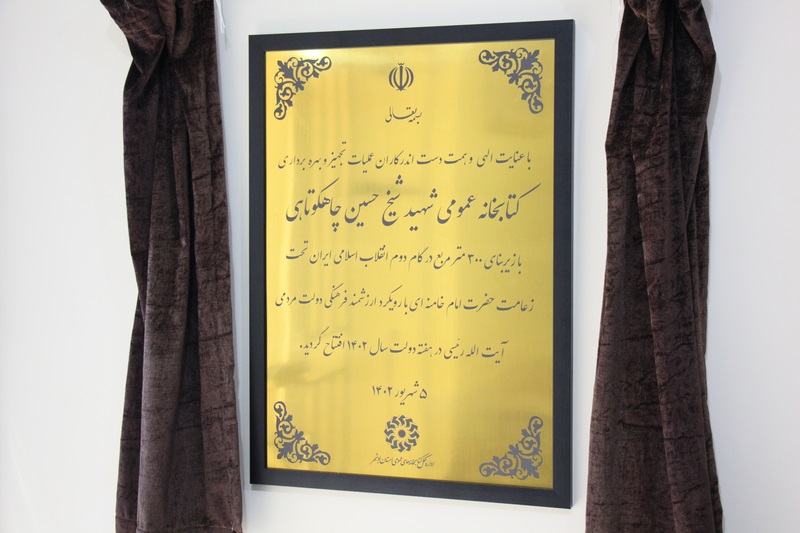 بسمه تعالی
با عنایت الهی و همت دست اندرکاران عملیات تجهیز و بهره برداری
کتابخانه عمومی شهید شیخ حسین چاهکوتاهی
با زیربنای ۳۰۰ متر مربع در گام دوم انقلاب اسلامی ایران تحت
زعامت حضرت امام خامنه ای با رویکرد ارزشمند فرهنگی دولت مردمی
آیت الله رئیسی در هفته دولت سال ۱۴۰۲ افتتاح گردید.
۵ شهریور ۱۴۰۲
اداره کل کتابخانه های عمومی استان بوشهر